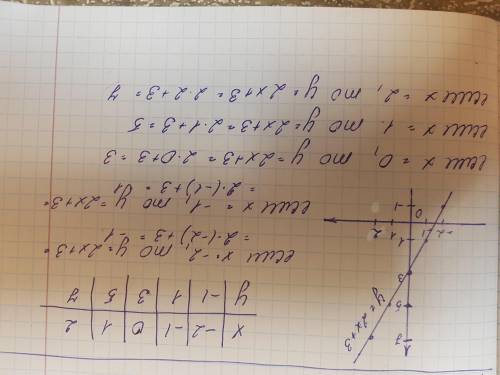 x | -2 | -1 | 0 | 1 | 2
y | -1 | 1 | 3 | 5 | 7
если x=-2, то y=2x+3=
=2·(-2)+3=-1
если x=-1, то y=2x+3=
=2·(-1)+3=1
если x=0, то y=2x+3=2·0+3=3
если x=1, то y=2x+3=2·1+3=5
если x=2, то y=2x+3=2·2+3=7
7
y=2x+3
5
3
1
-2 -1 0 2
-1